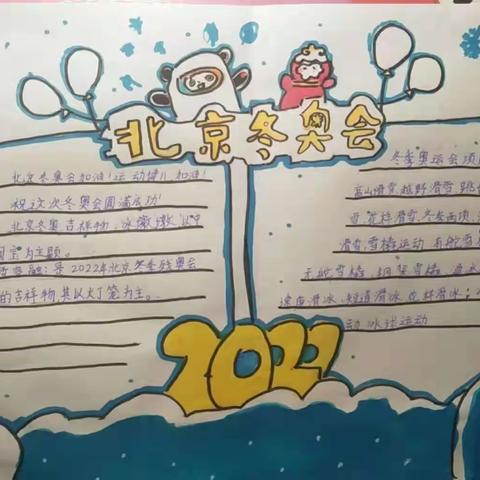 北京冬奥会
北京冬奥会加油!运动健儿加油!
祝这次冬奥会圆满成功
北京冬奥吉祥物,冰墩墩以中
国宝为主题。
雪容融:是2022年北京冬季残奥会
的吉祥物,其以大灯笼为主。
冬季奥运会项
高山滑雪 越野滑雪 跳
雪 自由式滑雪 冬季两项
滑雪 雪橇运动 有舵雪
无舵雪橇 钢架雪橇
速度滑冰 短道滑冰 花样滑冰
动 冰球运动
2022